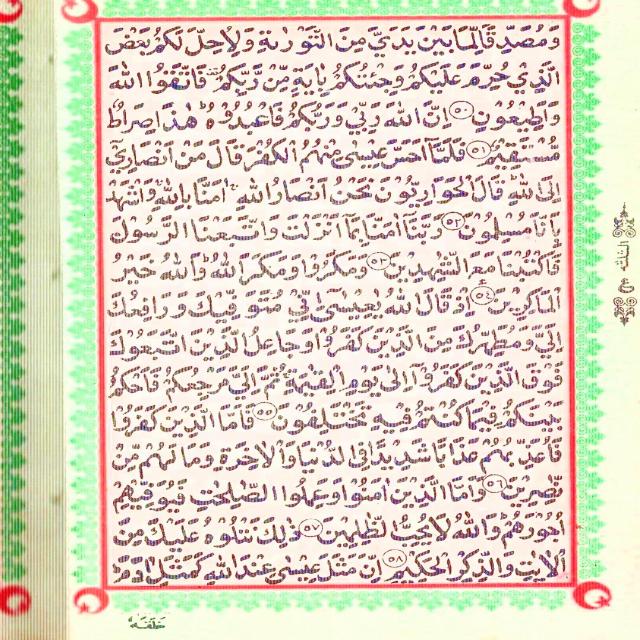 وَمُصَدِّقًا لِّمَا بَيْنَ يَدَيَّ مِنَ التَّوْرٰىةِ وَلِاُحِلَّ لَكُمْ بَعْضَ
الَّذِيْ حُرِّمَ عَلَيْكُمْ وَجِئْتُكُمْ بِاٰيَةٍ مِّنْ رَّبِّكُمْ فَاتَّقُوا اللّٰهَ
وَاَطِيْعُوْنِ ۝٥٠ اِنَّ اللّٰهَ رَبِّيْ وَرَبُّكُمْ فَاعْبُدُوْهُ هٰذَا صِرَاطٌ
مُّسْتَقِيْمٌ ۝٥١ فَلَمَّا اَحَسَّ عِيْسٰى مِنْهُمُ الْكُفْرَ قَالَ مَنْ اَنْصَارِيْٓ
اِلَى اللّٰهِ قَالَ الْحَوَارِيُّوْنَ نَحْنُ اَنْصَارُ اللّٰهِ اٰمَنَّا بِاللّٰهِ وَاشْهَدْ
بِاَنَّا مُسْلِمُوْنَ ۝٥٢ رَبَّنَآ اٰمَنَّا بِمَآ اَنْزَلْتَ وَاتَّبَعْنَا الرَّسُوْلَ
فَاكْتُبْنَا مَعَ الشّٰهِدِيْنَ ۝٥٣ وَمَكَرُوْا وَمَكَرَ اللّٰهُ وَاللّٰهُ خَيْرُ
الْمَاكِرِيْنَ ۝٥٤ اِذْ قَالَ اللّٰهُ يٰعِيْسٰٓى اِنِّيْ مُتَوَفِّيْكَ وَرَافِعُكَ
اِلَيَّ وَمُطَهِّرُكَ مِنَ الَّذِيْنَ كَفَرُوْا وَجَاعِلُ الَّذِيْنَ اتَّبَعُوْكَ
فَوْقَ الَّذِيْنَ كَفَرُوْٓا اِلٰى يَوْمِ الْقِيٰمَةِ ثُمَّ اِلَيَّ مَرْجِعُكُمْ فَاَحْكُمُ
بَيْنَكُمْ فِيْمَا كُنْتُمْ فِيْهِ تَخْتَلِفُوْنَ ۝٥٥ فَاَمَّا الَّذِيْنَ كَفَرُوْا
فَاُعَذِّبُهُمْ عَذَابًا شَدِيْدًا فِى الدُّنْيَا وَالْاٰخِرَةِ وَمَا لَهُمْ مِّنْ
نّٰصِرِيْنَ ۝٥٦ وَاَمَّا الَّذِيْنَ اٰمَنُوْا وَعَمِلُوا الصّٰلِحٰتِ فَيُوَفِّيْهِمْ
اُجُوْرَهُمْ وَاللّٰهُ لَا يُحِبُّ الظّٰلِمِيْنَ ۝٥٧ ذٰلِكَ نَتْلُوْهُ عَلَيْكَ مِنَ
الْاٰيٰتِ وَالذِّكْرِ الْحَكِيْمِ ۝٥٨ اِنَّ مَثَلَ عِيْسٰى عِنْدَ اللّٰهِ كَمَثَلِ اٰدَمَ
خَلَقَهٗ